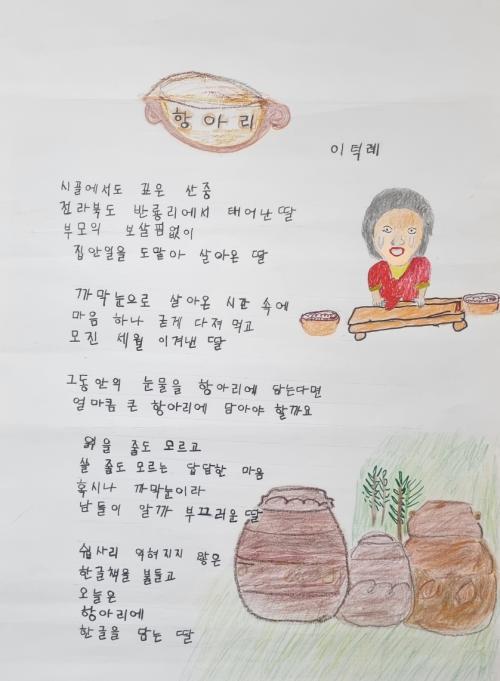 항아리
이덕례
시골에서도 깊은 산중
전라북도 반룡리에서 태어난 딸
부모의 보살핌없이
집안일을 도맡아 살아온 딸
까막눈으로 살아온 시간 속에
마음 하나 굳게 다져 먹고
모진 세월 이겨낸 딸
그동안의 눈물을 항아리에 담는다면
얼마큼 큰 항아리에 담아야 할까요
읽을 줄도 모르고
쓸 줄도 모르는 답답한 마음
혹시나 까막눈이라
남들이 알까 부끄러운 딸
쉽사리 익혀지지 않은
한글책을 붙들고
오늘은
항아리에
한글을 담는 딸